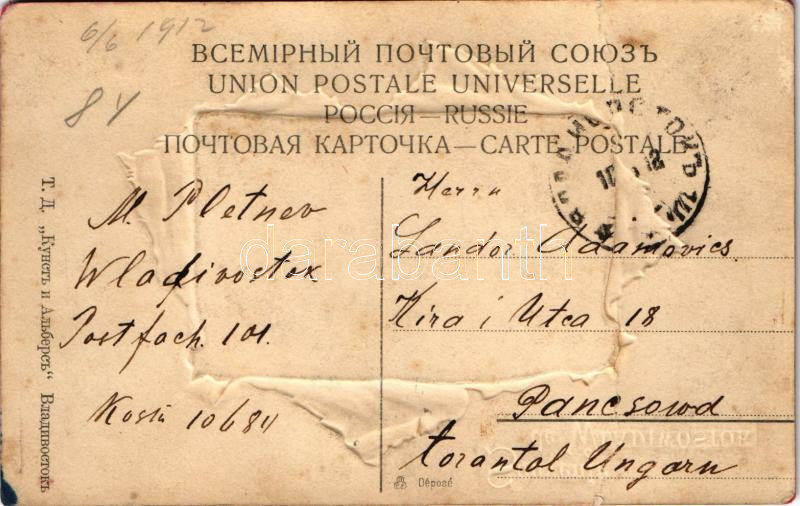 6/6 1912
84
ВСЕМІРНЫЙ ПОЧТОВЫЙ СОЮЗЪ
UNION POSTALE UNIVERSELLE
РОССІЯ — RUSSIE
ПОЧТОВАЯ КАРТОЧКА — CARTE POSTALE
M. Pletnev
Wladivostok
Postfach. 101.
10684
Herrn
Sandor Adamovics.
Kirai Utca 18
Pancsowa
torontal Ungarn
Т. Д. „Кунстъ и Альберсъ" Владивостокъ
Déposé
darabanth